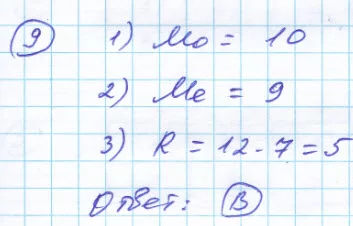 9 1) Mo = 10
2) Me = 9
3) R = 12 - 7 = 5
Ответ: B